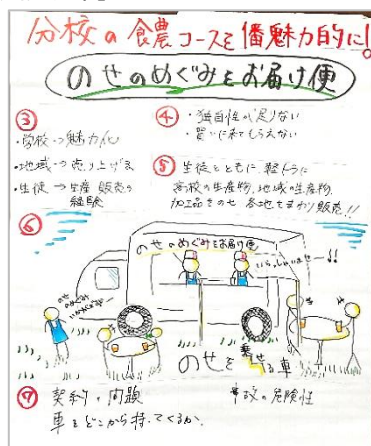 分校の食農コースを倍魅力的に!
のせのめぐみをお届け便
③
・学校→魅力化
・地域→売り上げ
・生徒→生産 販売の
経験
④
・独自性が足りない
・買いに来てもらえない
⑤
生徒とともに、軽トラに
高校の生産物、地域の生産物、
加工品をのせ 各地をまわり販売!!
⑥
のせのめぐみをお届け便
いらっしゃいませー!!
のせの
めぐみ
いかがですか
のせを乗せる車
⑦
契約の問題
車をどこから持ってくるか、
事故の危険性